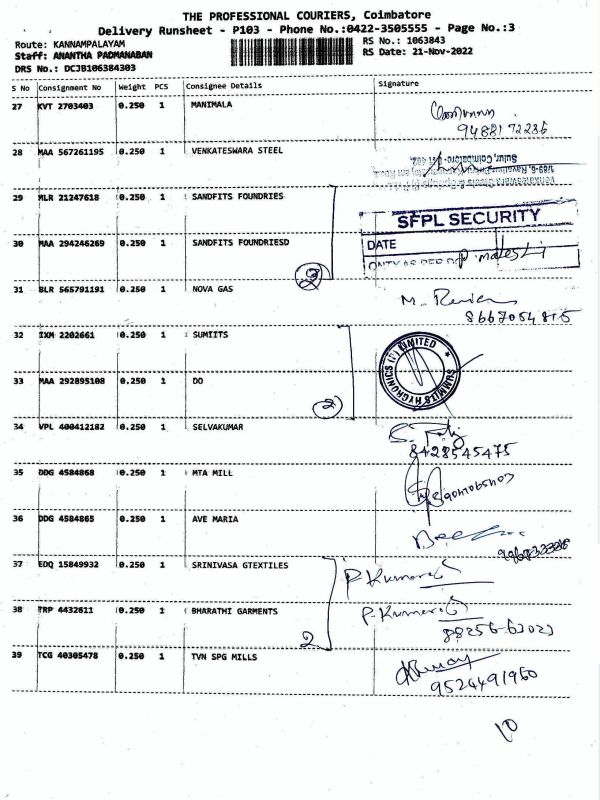 THE PROFESSIONAL COURIERS, Coimbatore
Delivery Runsheet - P103 - Phone No.:0422-3505555 - Page No.:3
Route: KANNAMPALAYAM RS No.: 1063843
Staff: ANANTHA PADMANABAN RS Date: 21-Nov-2022
DRS No.: DCJB106384303
S No Consignment No Weight PCS Consignee Details Signature
27 KVT 2703403 0.250 1 MANIMALA
9488172236
28 MAA 567261195 0.250 1 VENKATESWARA STEEL
Sulur, Coimbatore-641 402.
29 MLR 21247618 0.250 1 SANDFITS FOUNDRIES
SFPL SECURITY
30 MAA 294246269 0.250 1 SANDFITS FOUNDRIESD
DATE
2
31 BLR 565791191 0.250 1 NOVA GAS
M.
32 IXM 2202661 0.250 1 SUMIITS
SUMMITS HYGRONICS (P) LIMITED
33 MAA 292895108 0.250 1 DO
2
34 VPL 400412182 0.250 1 SELVAKUMAR
8428545475
35 DDG 4584868 0.250 1 MTA MILL
36 DDG 4584865 0.250 1 AVE MARIA
37 EDQ 15849932 0.250 1 SRINIVASA GTEXTILES
P. Kumar
38 TRP 4432611 0.250 1 BHARATHI GARMENTS
P. Kumar
2
39 TCG 40305478 0.250 1 TVN SPG MILLS
9524491960
10